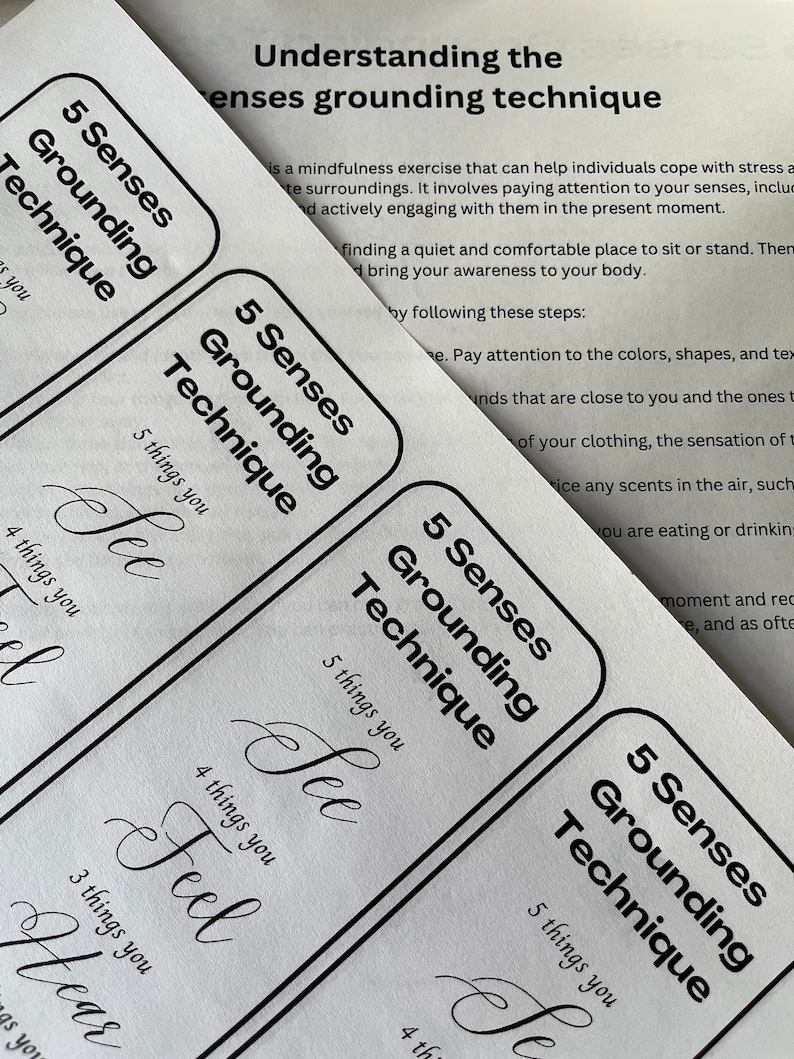 Understanding the
senses grounding technique
is a mindfulness exercise that can help individuals cope with stress
surroundings. It involves paying attention to your senses,
actively engaging with them in the present moment.
finding a quiet and comfortable place to sit or stand. Then
bring your awareness to your body.
by following these steps:
Pay attention to the colors, shapes, and
that are close to you and the ones
of your clothing, the sensation of
any scents in the air, such
you are eating or drinking
moment and
and as
5 Senses
Grounding
Technique
you
5 Senses
Grounding
Technique
5 things you
See
4 things you
Feel
5 Senses
Grounding
Technique
5 things you
See
4 things you
Feel
3 things you
Hear
things you
5 Senses
Grounding
Technique
5 things you
4